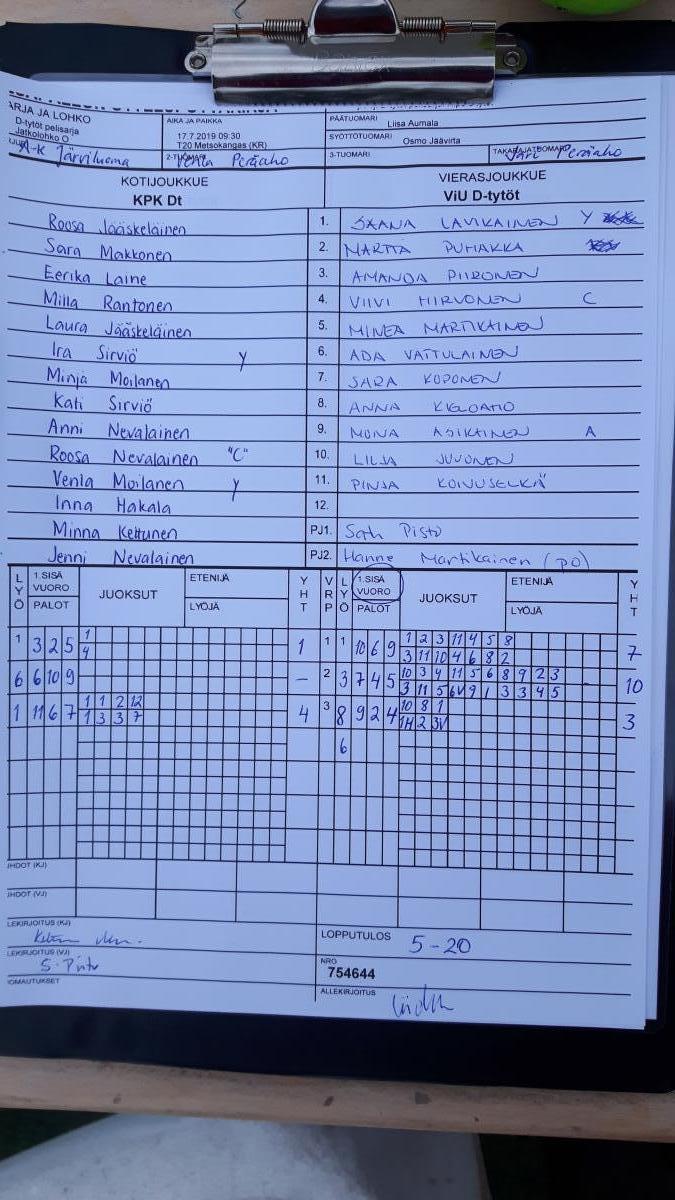 ARJA JA LOHKO
D-tytöt pelisarja
Jatkolohko O
A-K Järviluoma
AIKA JA PAIKKA
17.7.2019 09:30
T20 Metsokangas (KR)
2-TUOMARI Venla Peräaho
PÄÄTUOMARI Liisa Aumala
SYÖTTÖTUOMARI Osmo Jäävirta
3-TUOMARI
TAKARAJATUOMARI Jari Peräaho
KOTIJOUKKUE
KPK Dt
VIERASJOUKKUE
ViU D-tytöt
Roosa Jääskeläinen 1. SAANA LAVIKAINEN Y
Sara Makkonen 2. MARTTA PUHAKKA
Eerika Laine 3. AMANDA PIIRONEN
Milla Rantonen 4. VIIVI HIRVONEN C
Laura Jääskeläinen 5. MINEA MARTIKAINEN
Ira Sirviö Y 6. ADA VATTULAINEN
Minja Moilanen 7. SARA KOPONEN
Kati Sirviö 8. ANNA
Anni Nevalainen 9. MONA ASIKAINEN A
Roosa Nevalainen "C" 10. LILJA JUVONEN
Venla Moilanen Y 11. PINJA KOIVUSELKÄ
Inna Hakala 12.
Minna Kettunen PJ1. Satu Pisto
Jenni Nevalainen PJ2. Hanne Martikainen (po)
LYÖ 1.SISÄ VUORO PALOT JUOKSUT ETENIJÄ LYÖJÄ YHT VRP LYÖ 1.SISÄ VUORO PALOT JUOKSUT ETENIJÄ LYÖJÄ YHT
1 3 2 5 1 1 1 1 10 6 9 1 2 3 11 4 5 8 7
4 3 11 10 4 6 8 2
6 6 10 9 – 2 3 7 4 5 10 3 4 11 5 6 8 9 2 3 - 10
3 11 5 6V 9 1 3 3 4 5
1 11 6 7 1 1 2 12 4 3 8 9 2 4 10 8 1 3
1 3 3 7 1H 2 3V
6
JHDOT (KJ)
JHDOT (VJ)
LEKIRJOITUS (KJ)
LEKIRJOITUS (VJ)
S. Pisto
OMAUTUKSET
LOPPUTULOS 5-20
NRO
754644
ALLEKIRJOITUS